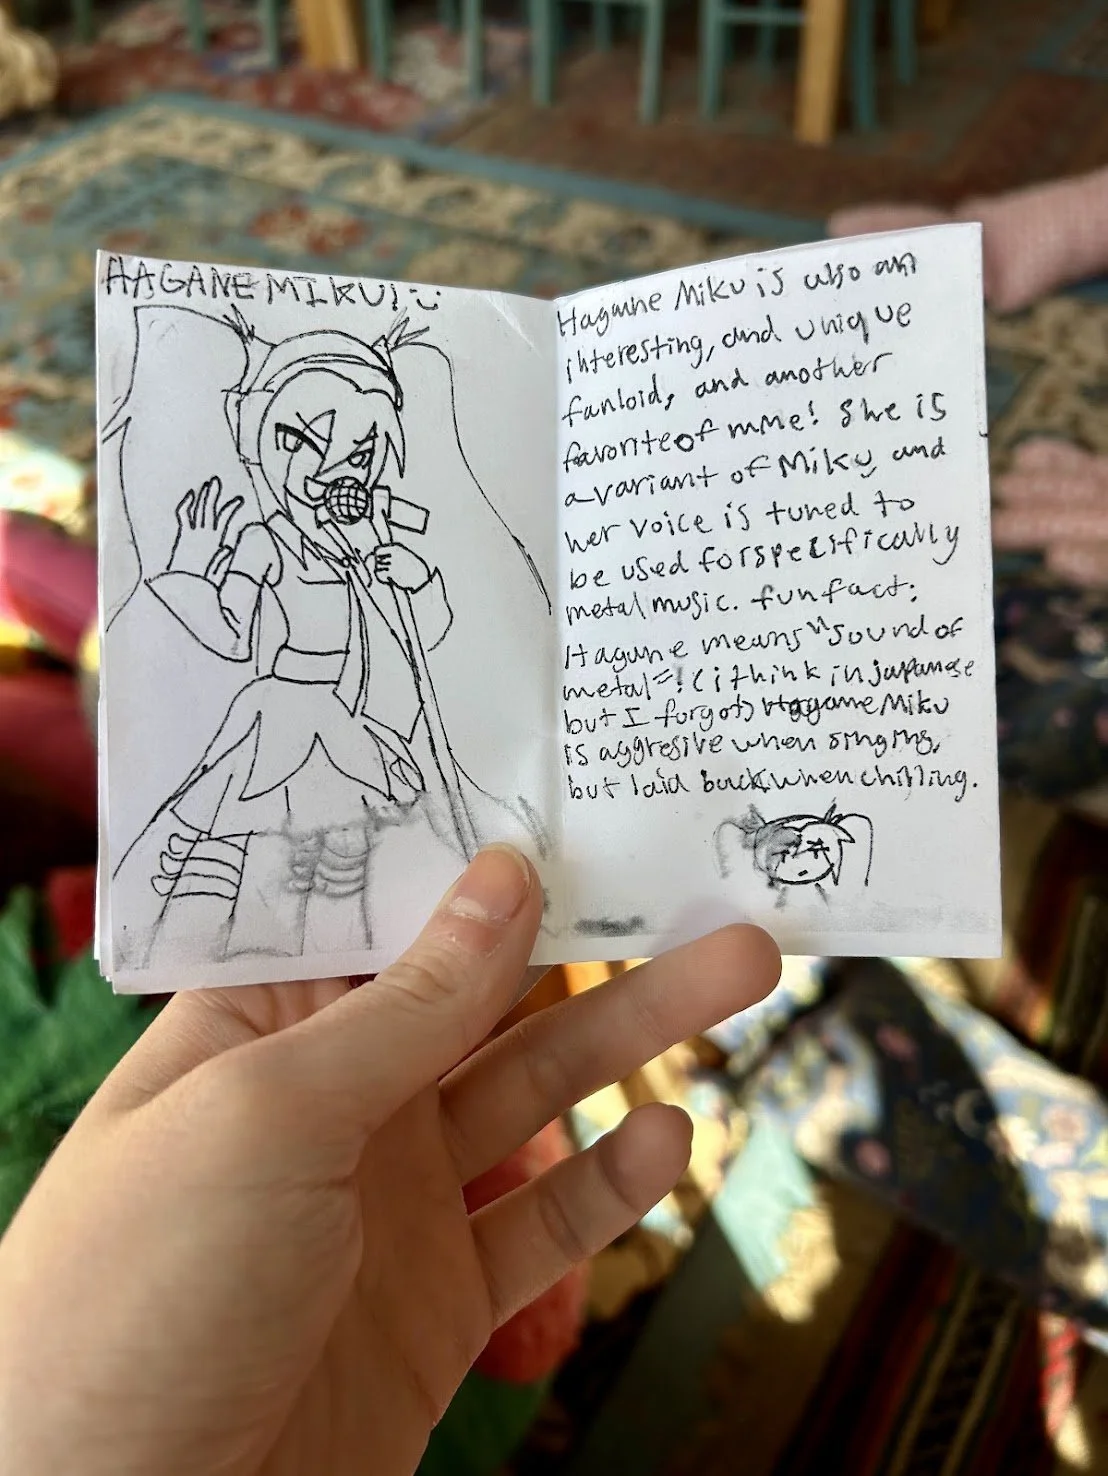 HAGANE MIKU! :)
Hagane Miku is also an
interesting, and unique
fanloid, and another
favorite of mme! She is
a variant of Miku, and
her voice is tuned to
be used for specifically
metal music. fun fact:
Hagane means "sound of
metal"! (i think in japanese
but I forgot) Hagane Miku
is aggresive when singing,
but laid back when chilling.